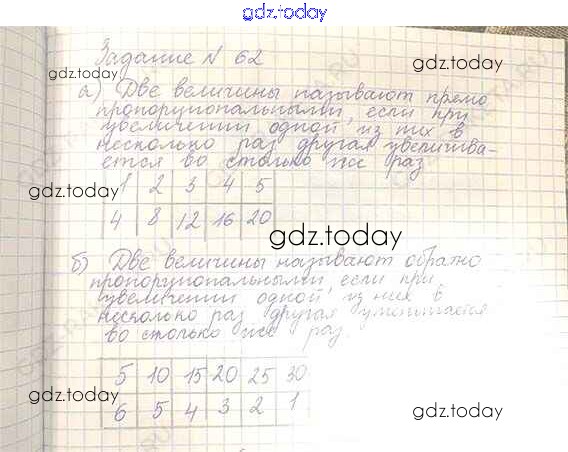 gdz.today
Задание № 62
gdz.today
gdz.today
а) Две величины называют прямо
пропорциональными, если при
увеличении одной из них в
несколько раз другая увеличива-
ется во столько же раз
gdz.today
gdz.today
1 2 3 4 5
4 8 12 16 20
gdz.today
б) Две величины называют обратно
пропорциональными, если при
увеличении одной из них в
несколько раз другая уменьшается
во столько же раз.
5 10 15 20 25 30
6 5 4 3 2 1
gdz.today
gdz.today